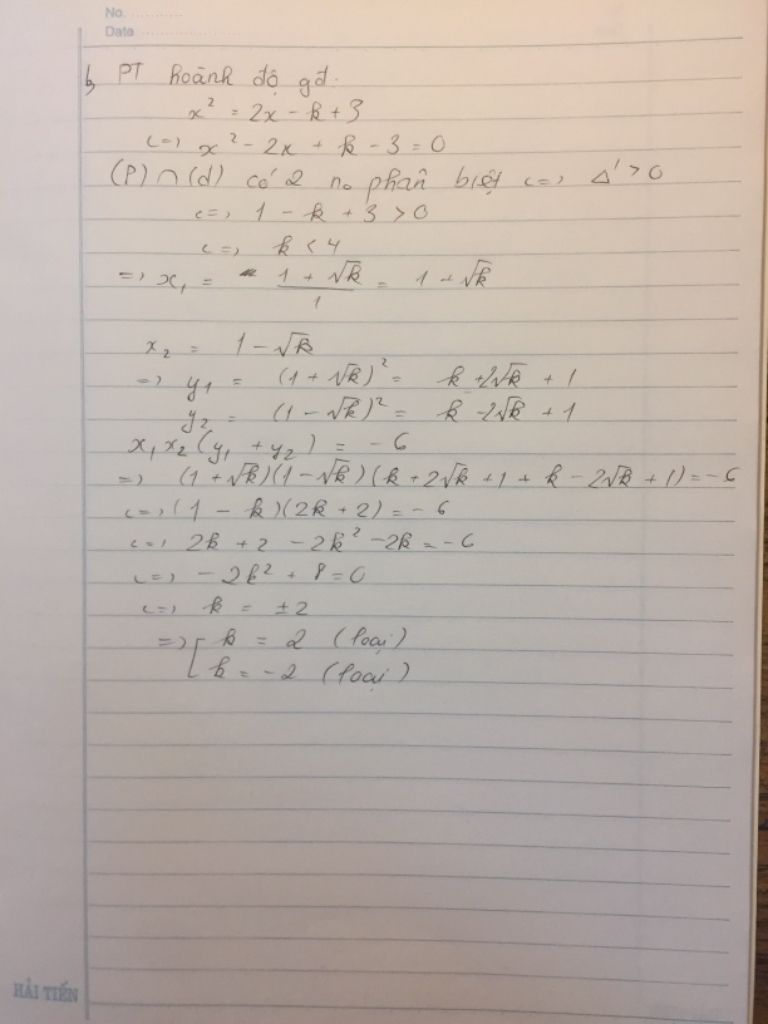 No. ............
Date ........................
b, PT hoành độ gđ.
x² = 2x - k + 3
<=> x² - 2x + k - 3 = 0
(P) ∩ (d) có 2 no phân biệt <=> Δ' > 0
<=> 1 - k + 3 > 0
<=> k < 4
=> x₁ = (1 + √k)/1 = 1 + √k
x₂ = 1 - √k
=> y₁ = (1 + √k)² = k + 2√k + 1
y₂ = (1 - √k)² = k - 2√k + 1
x₁x₂(y₁ + y₂) = -6
=> (1 + √k)(1 - √k)(k + 2√k + 1 + k - 2√k + 1) = -6
<=> (1 - k)(2k + 2) = -6
<=> 2k + 2 - 2k² - 2k = -6
<=> -2k² + 8 = 0
<=> k = ±2
=> [ k = 2 (loại)
k = -2 (loại)
HẢI TIẾN